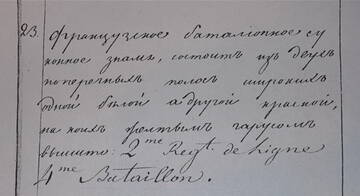 23. Французское баталіонное су
конное знамя, состоитъ изъ двухъ
поперечныхъ полосъ широкихъ
одной бѣлой а другой красной,
на коихъ желтымъ гарусомъ
вышито: 2me Regt. de Ligne
4me Bataillon.